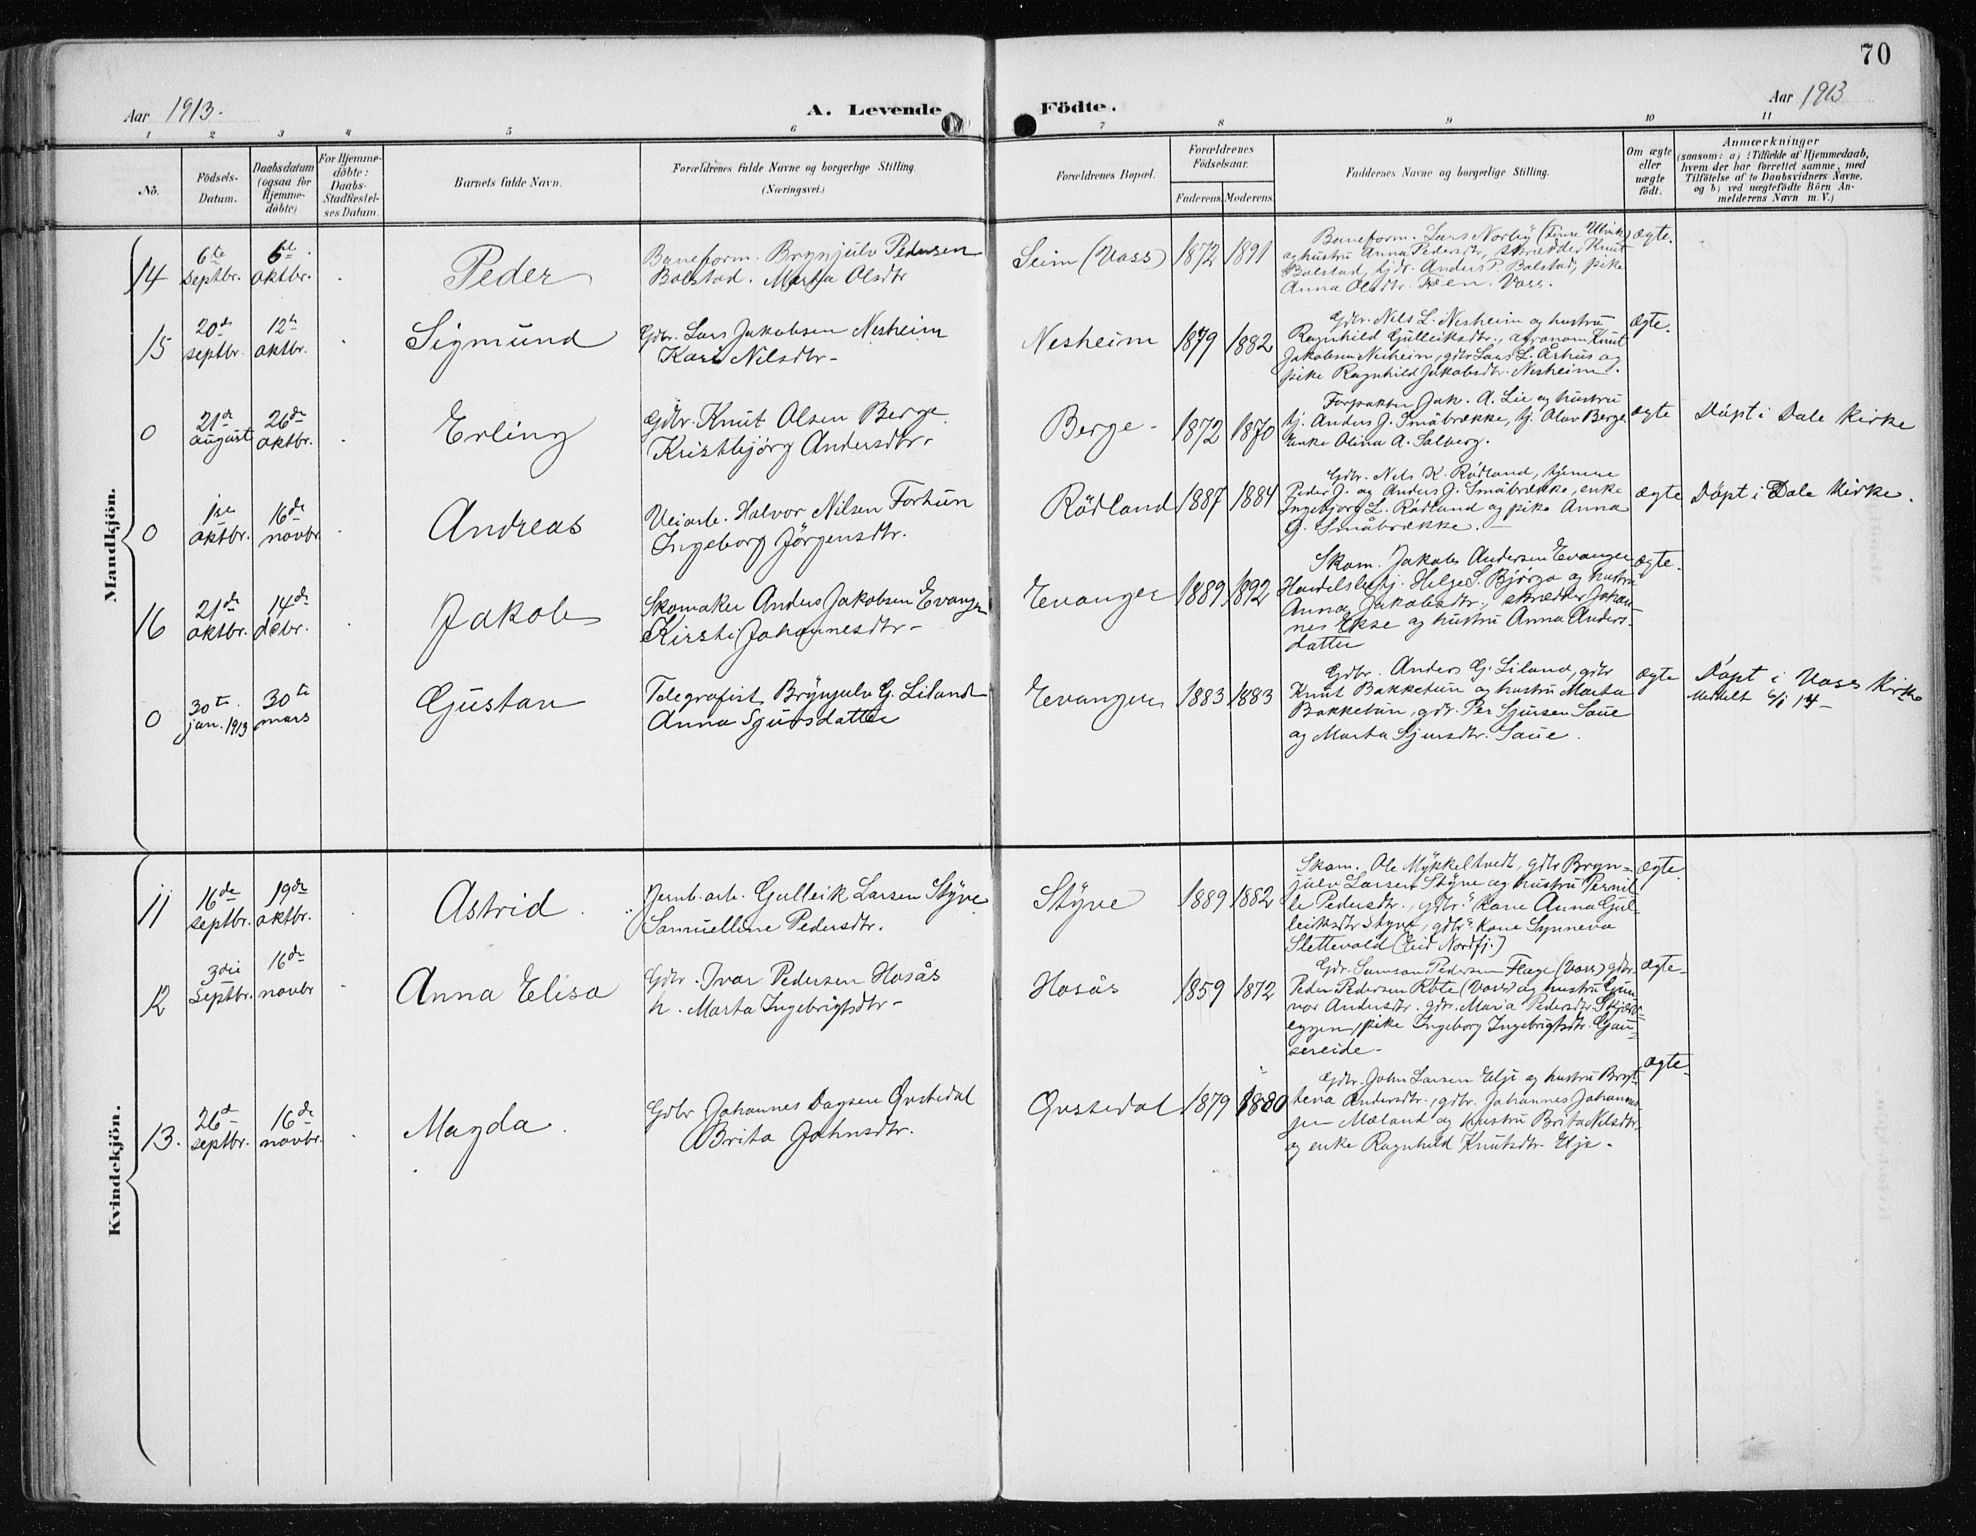 70
Aar 1913.
A. Levende Födte.
Aar 1913
1 2 3 4 5 6 7 8 9 10 11
No.
Födsels-
Datum.
Daabsdatum
(ogsaa for
Hjemme-
döbte)
For Hjemme-
döbte:
Daabs-
Stadfæstel-
ses Datum.
Barnets fulde Navn.
Forældrenes fulde Navne og borgerlige Stilling.
(Næringsvei.)
Forældrenes Bopæl.
Forældrenes
Födselsaar.
Faderens. Moderens.
Faddernes Navne og borgerlige Stilling.
Om ægte
eller
uægte
födt.
Anmærkninger
(saasom: a) i Tilfælde af Hjemmedaab,
hvem der har forrettet samme, med
Tilföielse af to Daabsvidners Navne,
og b) ved uægtefödte Börn An-
melderens Navn m. V.)
Mandkjön.
14
6te
septbr.
5te
oktbr.
Peder
Baneform. Brynjulv Pedersen
Bolstad. Marta Olsdtr
Seim (Voss)
1872 1891
Baneform. Lars Norby (Finse Ulvik)
og hustru Anna Pedersdtr, skrædder Knut
Bolstad, tjdr. Anders P. Bolstad, pike
Anna Olsdtr. Fren. Voss.
ægte.
15
20de
septbr.
12te
oktbr.
Sigmund
Gdbr. Lars Jakobsen Nesheim
Kari Nilsdtr-
Nesheim
1879 1882
Gdbr. Nils L. Nesheim og hustru
Ragnhild Gulleiksdtr., agronom Knut
Jakobsen Nesheim, gdbr Lars L. Århus og
pike Ragnhild Jakobsdtr. Nesheim.
ægte.
0
21de
august
26de
oktbr.
Erling
Gdbr. Knut Olsen Berge
Kristbjörg Andersdtr.
Berge-
1872 1870
Forpakter Jak. A. Lie og hustru
tj. Anders J. Småbrække, tj. Olav Berge
Enke Olina A. Solberg.
ægte
Döpt i Dale Kirke
0
1ste
oktbr.
16de
novbr
Andreas
Veiarb. Halvor Nilsen Fortun
Ingeborg Jørgensdtr.
Rödland
1887 1884
Gdbr. Nils K. Rödland, tjenere
Peder J. og Anders J. Småbrække, enke
Ingebjorg L. Rödland og pike Anna
G. Småbrække.
ægte
Döpt i Dale Kirke.
16
21de
oktbr.
14de
debr.
Jakob
Skomaker Anders Jakobsen Evanger
Kirsti Johannesdtr-
Evanger
1889 1892
Skom. Jakob Andersen Evanger
Handelsbetj. Helge S. Bjørgo og hustru
Anna Jakobsdtr., skrædder Johan-
nes Ekse og hustru Anna Anders-
datter
ægte.
0
30te
jan. 1913
30te
mars
Gustav
Telegrafist Brynjulv G. Liland
Anna Sjursdatter
Evanger
1883 1883
Gdbr. Anders G. Liland, gdbr
Knut Bakketun og hustru Marta
Bakketun, gdr. Per Sjursen Saue
og Marta Sjursdtr. Saue.
ægte
Döpt i Voss Kirke
Meldt 6/1 14-
Kvindekjön.
11
16de
septbr.
19de
oktbr.
Astrid
Jernb. arb. Gulleik Larsen Styve
Samueline Pedersdtr.
Styve
1889 1882
Skom. Ole Mykkeltvedt, gdbr Bryn-
julv Larsen Styve og hustru Pernil-
le Pedersdtr., gdbr. kone Anna Gul-
leiksdtr Styve, gdbr kone Synneva
Slettevold (Eid Nordfj.)
ægte.
12
3die
septbr.
16de
novbr
Anna Elisa
Gdbr. Ivar Pedersen Hosås
h. Marta Ingebrigtsdtr-
Hosås
1859 1872
Gdbr. Samson Pedersen Flage (Voss) gdbr.
Peder Pedersen Rote (Voss) og hustru Gun-
vor Andersdtr. gdr. Maria Pedersdtr. Skjær-
eggen, pike Ingeborg Ingebrigtsdtr. Gau-
sereide-
ægte-
13.
26de
septbr.
16de
novbr.
Magda.
Gdbr Johannes Dagsen Øvstedal
Brita Johnsdtr.
Øvstedal
1879 1880
Gdbr. John Larsen Elje og hustru Bryt-
teva Andersdtr., gdbr. Johannes Johannes-
sen Mæland og hustru Brita Nilsdtr,
og enke Ragnhild Knutsdtr. Elje-
ægte-